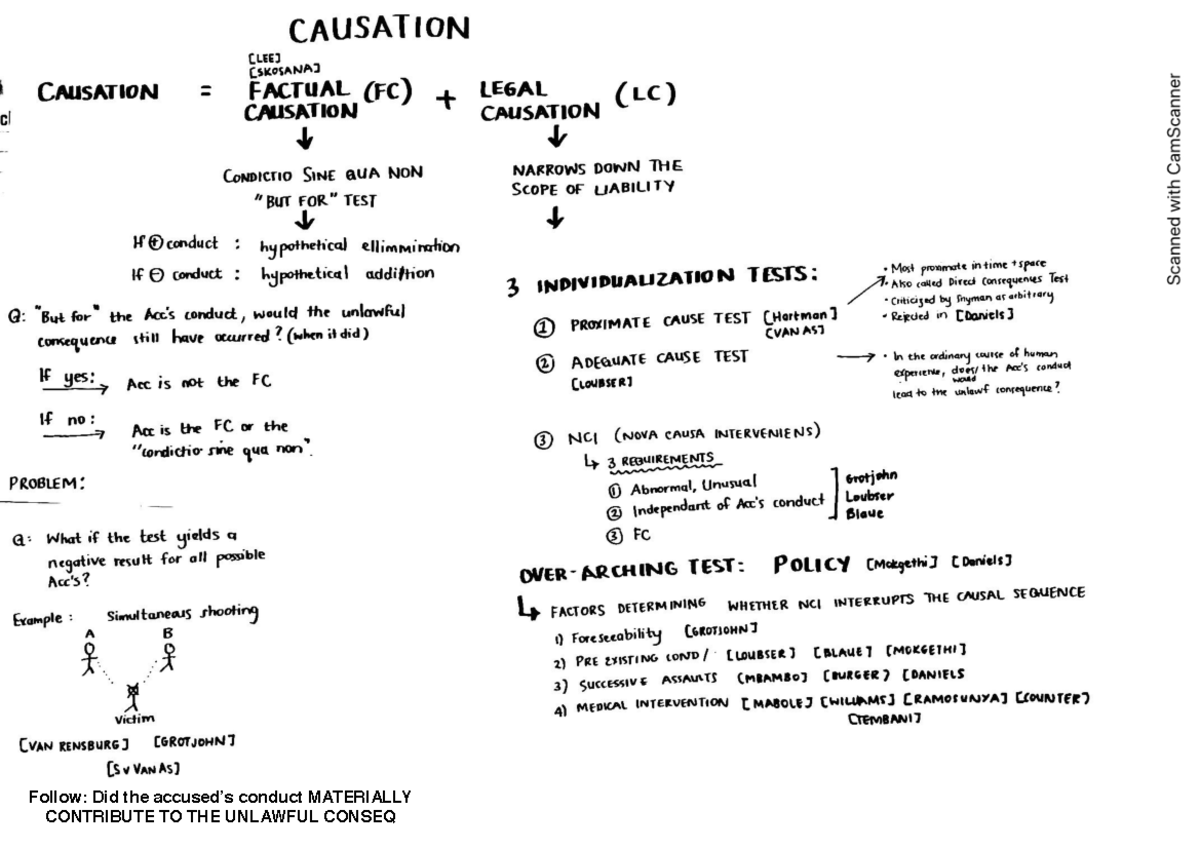 CAUSATION
[LEE]
[SKOSANA]
CAUSATION = FACTUAL CAUSATION (FC) + LEGAL CAUSATION (LC)
cl
CONDICTIO SINE QUA NON
"BUT FOR" TEST
If ⊕ conduct : hypothetical ellimmination
If ⊖ conduct : hypothetical addition
Q: "But for" the Acc's conduct, would the unlawful
consequence still have occurred? (when it did)
If yes: Acc is not the FC
If no: Acc is the FC or the
"condictio sine qua non".
PROBLEM:
Q: What if the test yields a
negative result for all possible
Acc's?
Example : Simultaneous shooting
A B
Victim
[VAN RENSBURG] [GROTJOHN]
[S v VAN AS]
Follow: Did the accused's conduct MATERIALLY
CONTRIBUTE TO THE UNLAWFUL CONSEQ
NARROWS DOWN THE
SCOPE OF LIABILITY
3 INDIVIDUALIZATION TESTS:
① PROXIMATE CAUSE TEST [Hartman]
[VAN AS]
• Most proximate in time + space
• Also called Direct Consequenes Test
• Criticized by Snyman as arbitrary
• Rejected in [Daniels]
② ADEQUATE CAUSE TEST
[LOUBSER]
• In the ordinary course of human
experience, does/ the Acc's conduct
would
lead to the unlawf consequence?
③ NCI (NOVA CAUSA INTERVENIENS)
3 REQUIREMENTS
① Abnormal, Unusual
② Independant of Acc's conduct
③ FC
Grotjohn
Loubser
Blaue
OVER-ARCHING TEST: POLICY [Mokgethi] [Daniels]
FACTORS DETERMINING WHETHER NCI INTERRUPTS THE CAUSAL SEQUENCE
1) Foreseeability [GROTJOHN]
2) PRE EXISTING COND/ [LOUBSER] [BLAUE] [MOKGETHI]
3) SUCCESSIVE ASSAULTS [MBAMBO] [BURGER] [DANIELS
4) MEDICAL INTERVENTION [MABOLE] [WILLIAMS] [RAMOSUNYA] [COUNTER]
[TEMBANI]
Scanned with CamScanner